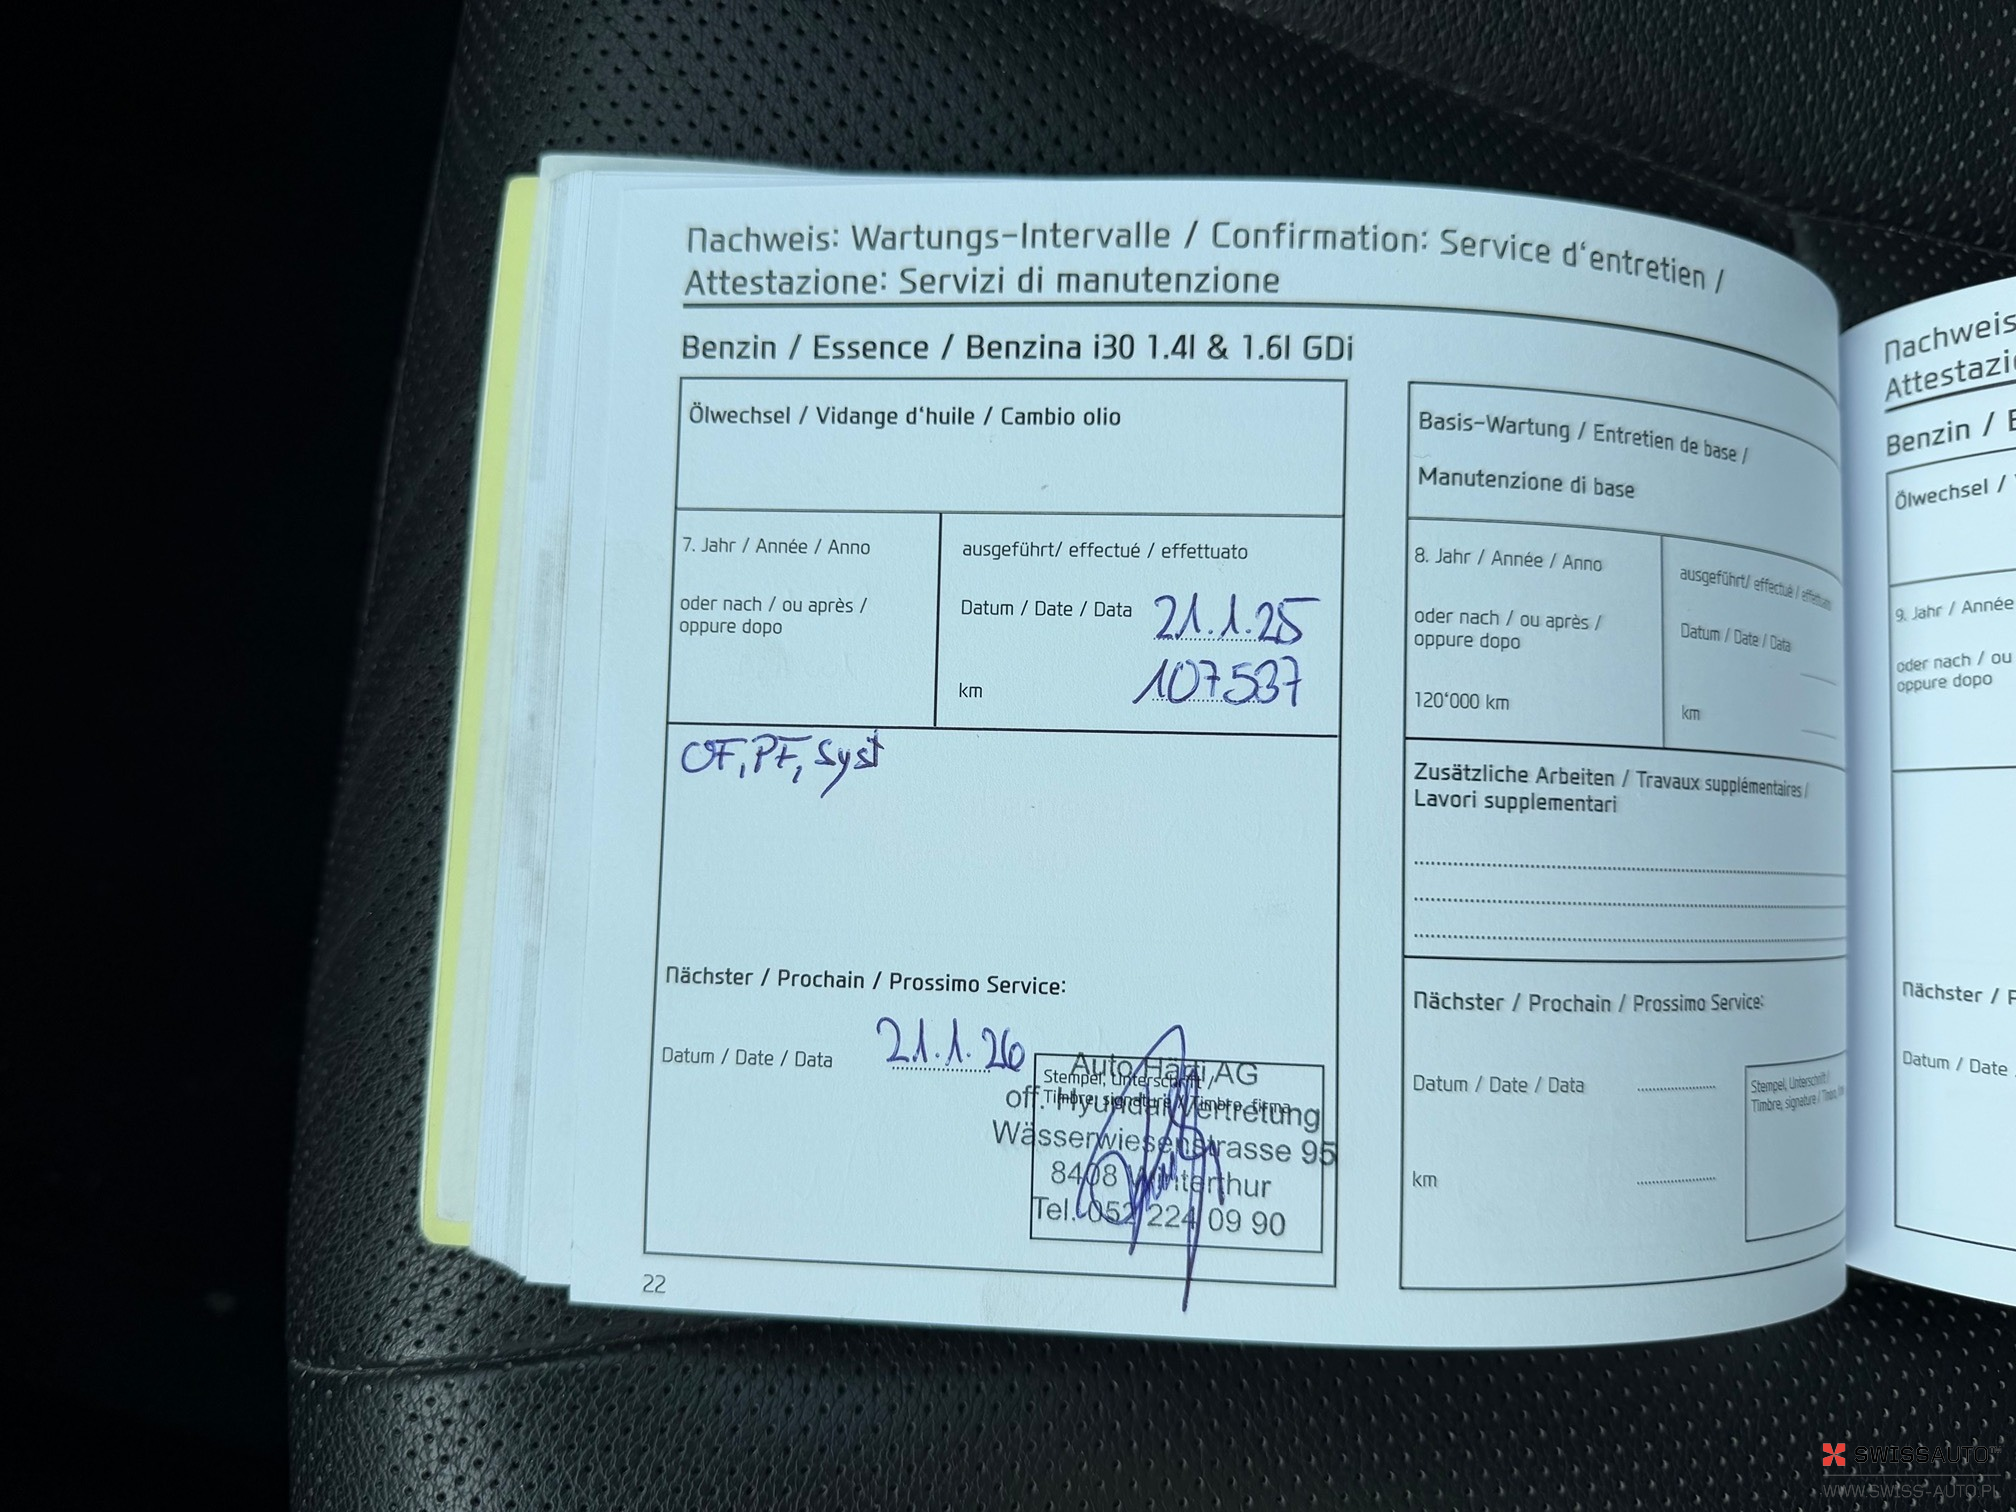 Nachweis: Wartungs-Intervalle / Confirmation: Service d'entretien /
Attestazione: Servizi di manutenzione
Benzin / Essence / Benzina i30 1.4l & 1.6l GDi
Ölwechsel / Vidange d'huile / Cambio olio
7. Jahr / Année / Anno
oder nach / ou après /
oppure dopo
ausgeführt/ effectué / effettuato
Datum / Date / Data 21.1.25
km 107537
OF, PF, Syst
Nächster / Prochain / Prossimo Service:
Datum / Date / Data 21.1.26
Stempel, Unterschrift /
Timbre, signature / Timbro, firma
Auto Hädi AG
off. Hyundai Vertretung
Wässerwiesenstrasse 95
8408 Winterthur
Tel. 052 224 09 90
22
Basis-Wartung / Entretien de base /
Manutenzione di base
8. Jahr / Année / Anno
oder nach / ou après /
oppure dopo
120'000 km
ausgeführt/ effectué / effettuato
Datum / Date / Data
km
Zusätzliche Arbeiten / Travaux supplémentaires /
Lavori supplementari
Nächster / Prochain / Prossimo Service:
Datum / Date / Data
km
Stempel, Unterschrift /
Timbre, signature /
Nachweis
Attestazi
Benzin /
Ölwechsel /
9. Jahr / Année
oder nach / ou
oppure dopo
Nächster /
Datum / Date
SWISSAUTO
WWW.SWISS-AUTO.PL